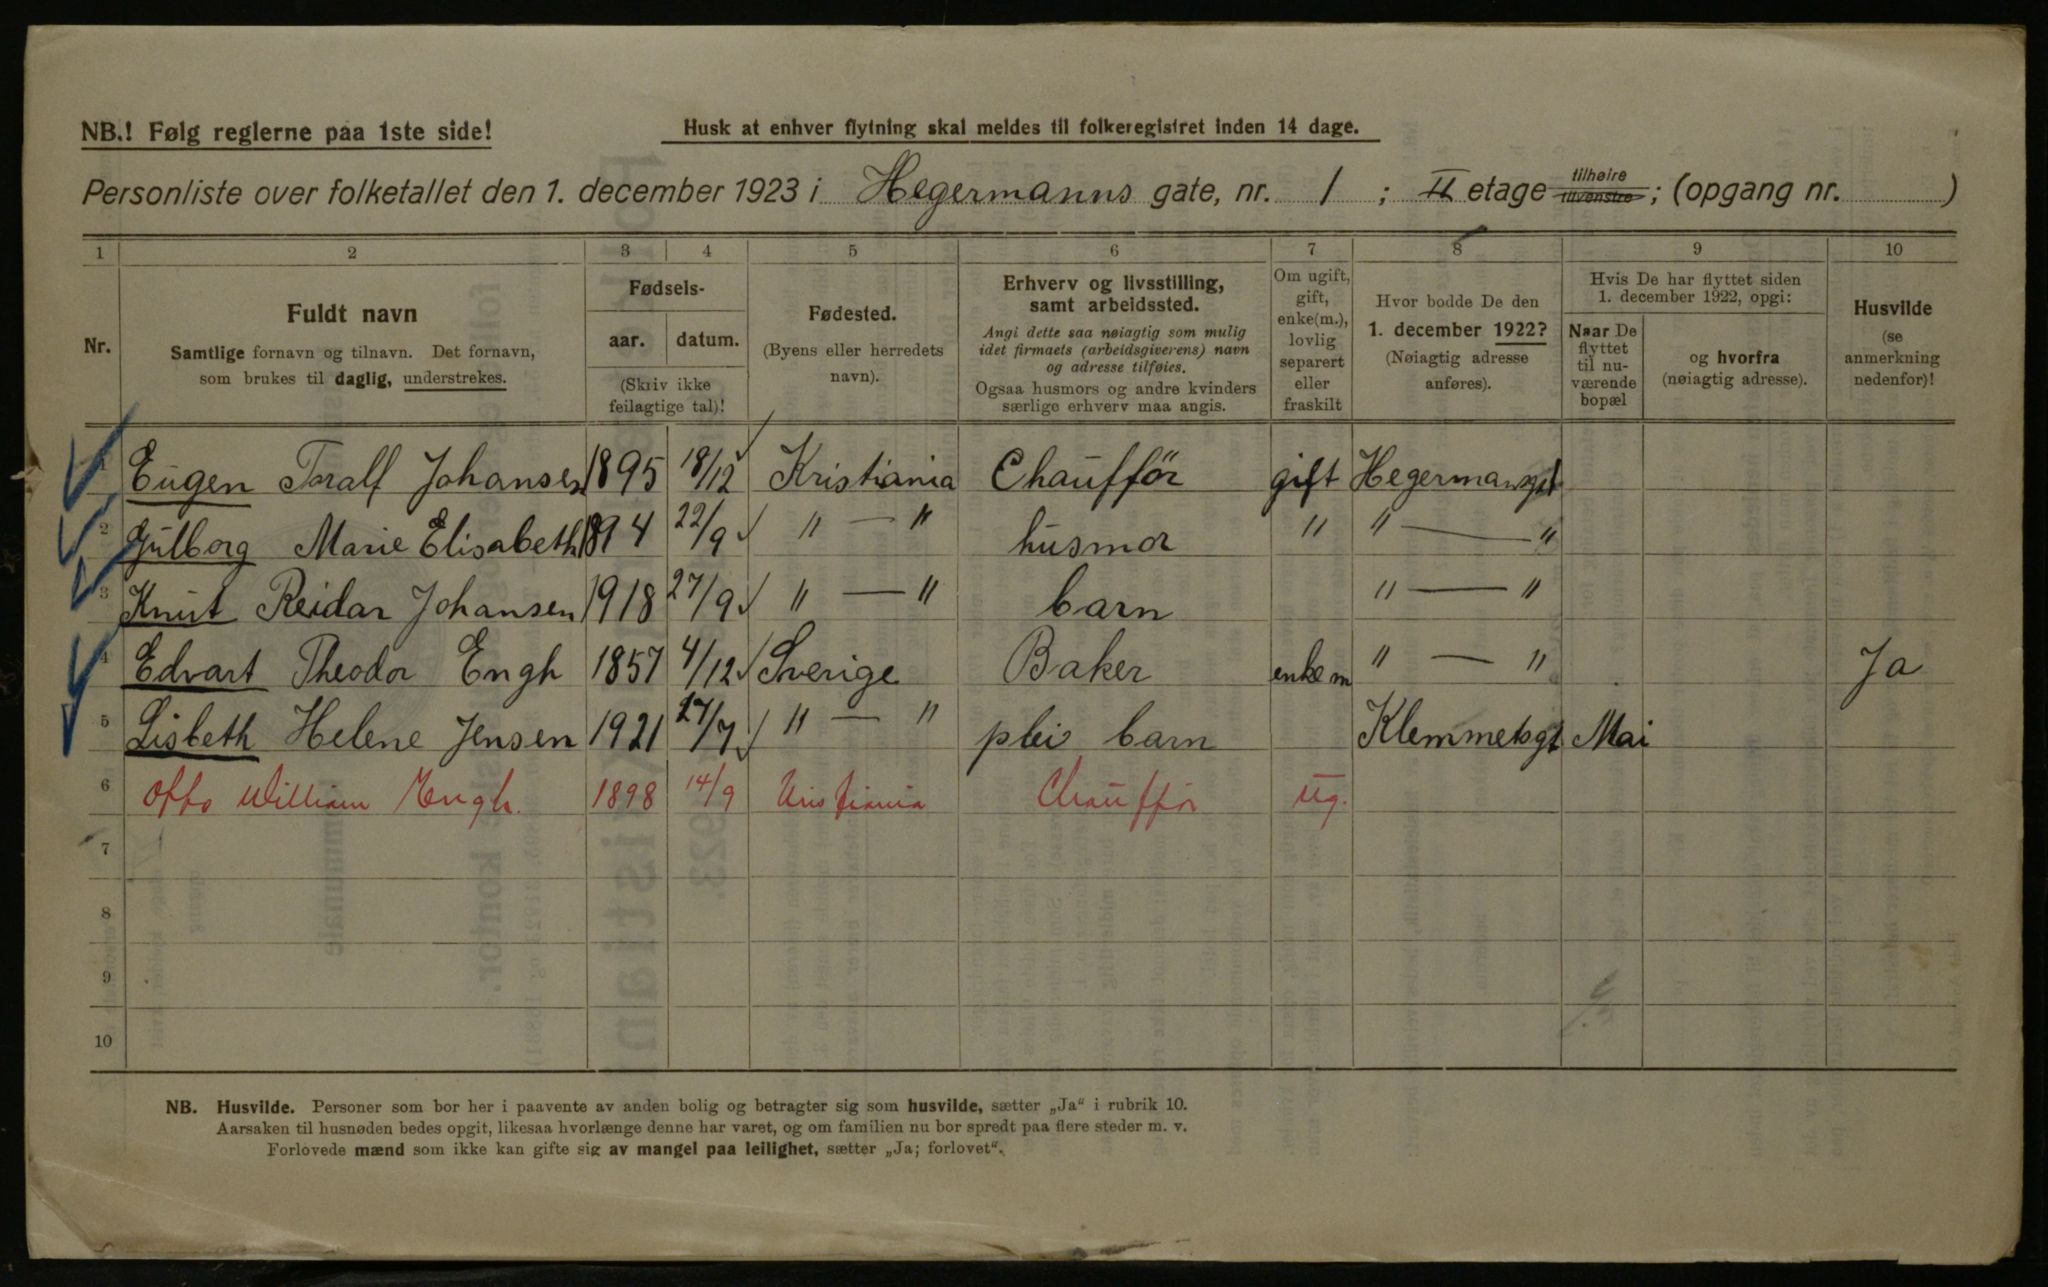 NB.! Følg reglerne paa 1ste side!
Husk at enhver flytning skal meldes til folkeregistret inden 14 dage.
Personliste over folketallet den 1. december 1923 i Hegermanns gate, nr. 1 ; II etage tilhøire tilvenstre ; (opgang nr. )
1 2 3 4 5 6 7 8 9 10
Nr.
Fuldt navn
Samtlige fornavn og tilnavn. Det fornavn,
som brukes til daglig, understrekes.
Fødsels-
aar. datum.
(Skriv ikke
feilagtige tal)!
Fødested.
(Byens eller herredets
navn).
Erhverv og livsstilling,
samt arbeidssted.
Angi dette saa nøiagtig som mulig
idet firmaets (arbeidsgiverens) navn
og adresse tilføies.
Ogsaa husmors og andre kvinders
særlige erhverv maa angis.
Om ugift,
gift,
enke(m.),
lovlig
separert
eller
fraskilt
Hvor bodde De den
1. december 1922?
(Nøiagtig adresse
anføres).
Hvis De har flyttet siden
1. december 1922, opgi:
Naar De
flyttet
til nu-
værende
bopæl
og hvorfra
(nøiagtig adresse).
Husvilde
(se
anmerkning
nedenfor)!
1 Eugen Toralf Johansen 1895 18/12 Kristiania Chaufför gift Hegermansgt
2 Gulborg Marie Elisabeth 1894 22/9 " — " husmor " " — "
3 Knut Reidar Johansen 1918 27/9 " — " barn " — "
4 Edvart Theodor Engh 1857 4/12 Sverige Baker enkem " — " Ja
5 Lisbeth Helene Jensen 1921 27/7 " — " plei barn Klemmetsgt Mai
6 Otto William Engh. 1898 14/9 Kristiania Chaufför ug.
7
8
9
10
NB. Husvilde. Personer som bor her i paavente av anden bolig og betragter sig som husvilde, sætter „Ja" i rubrik 10.
Aarsaken til husnøden bedes opgit, likesaa hvorlænge denne har varet, og om familien nu bor spredt paa flere steder m. v.
Forlovede mænd som ikke kan gifte sig av mangel paa leilighet, sætter „Ja; forlovet".